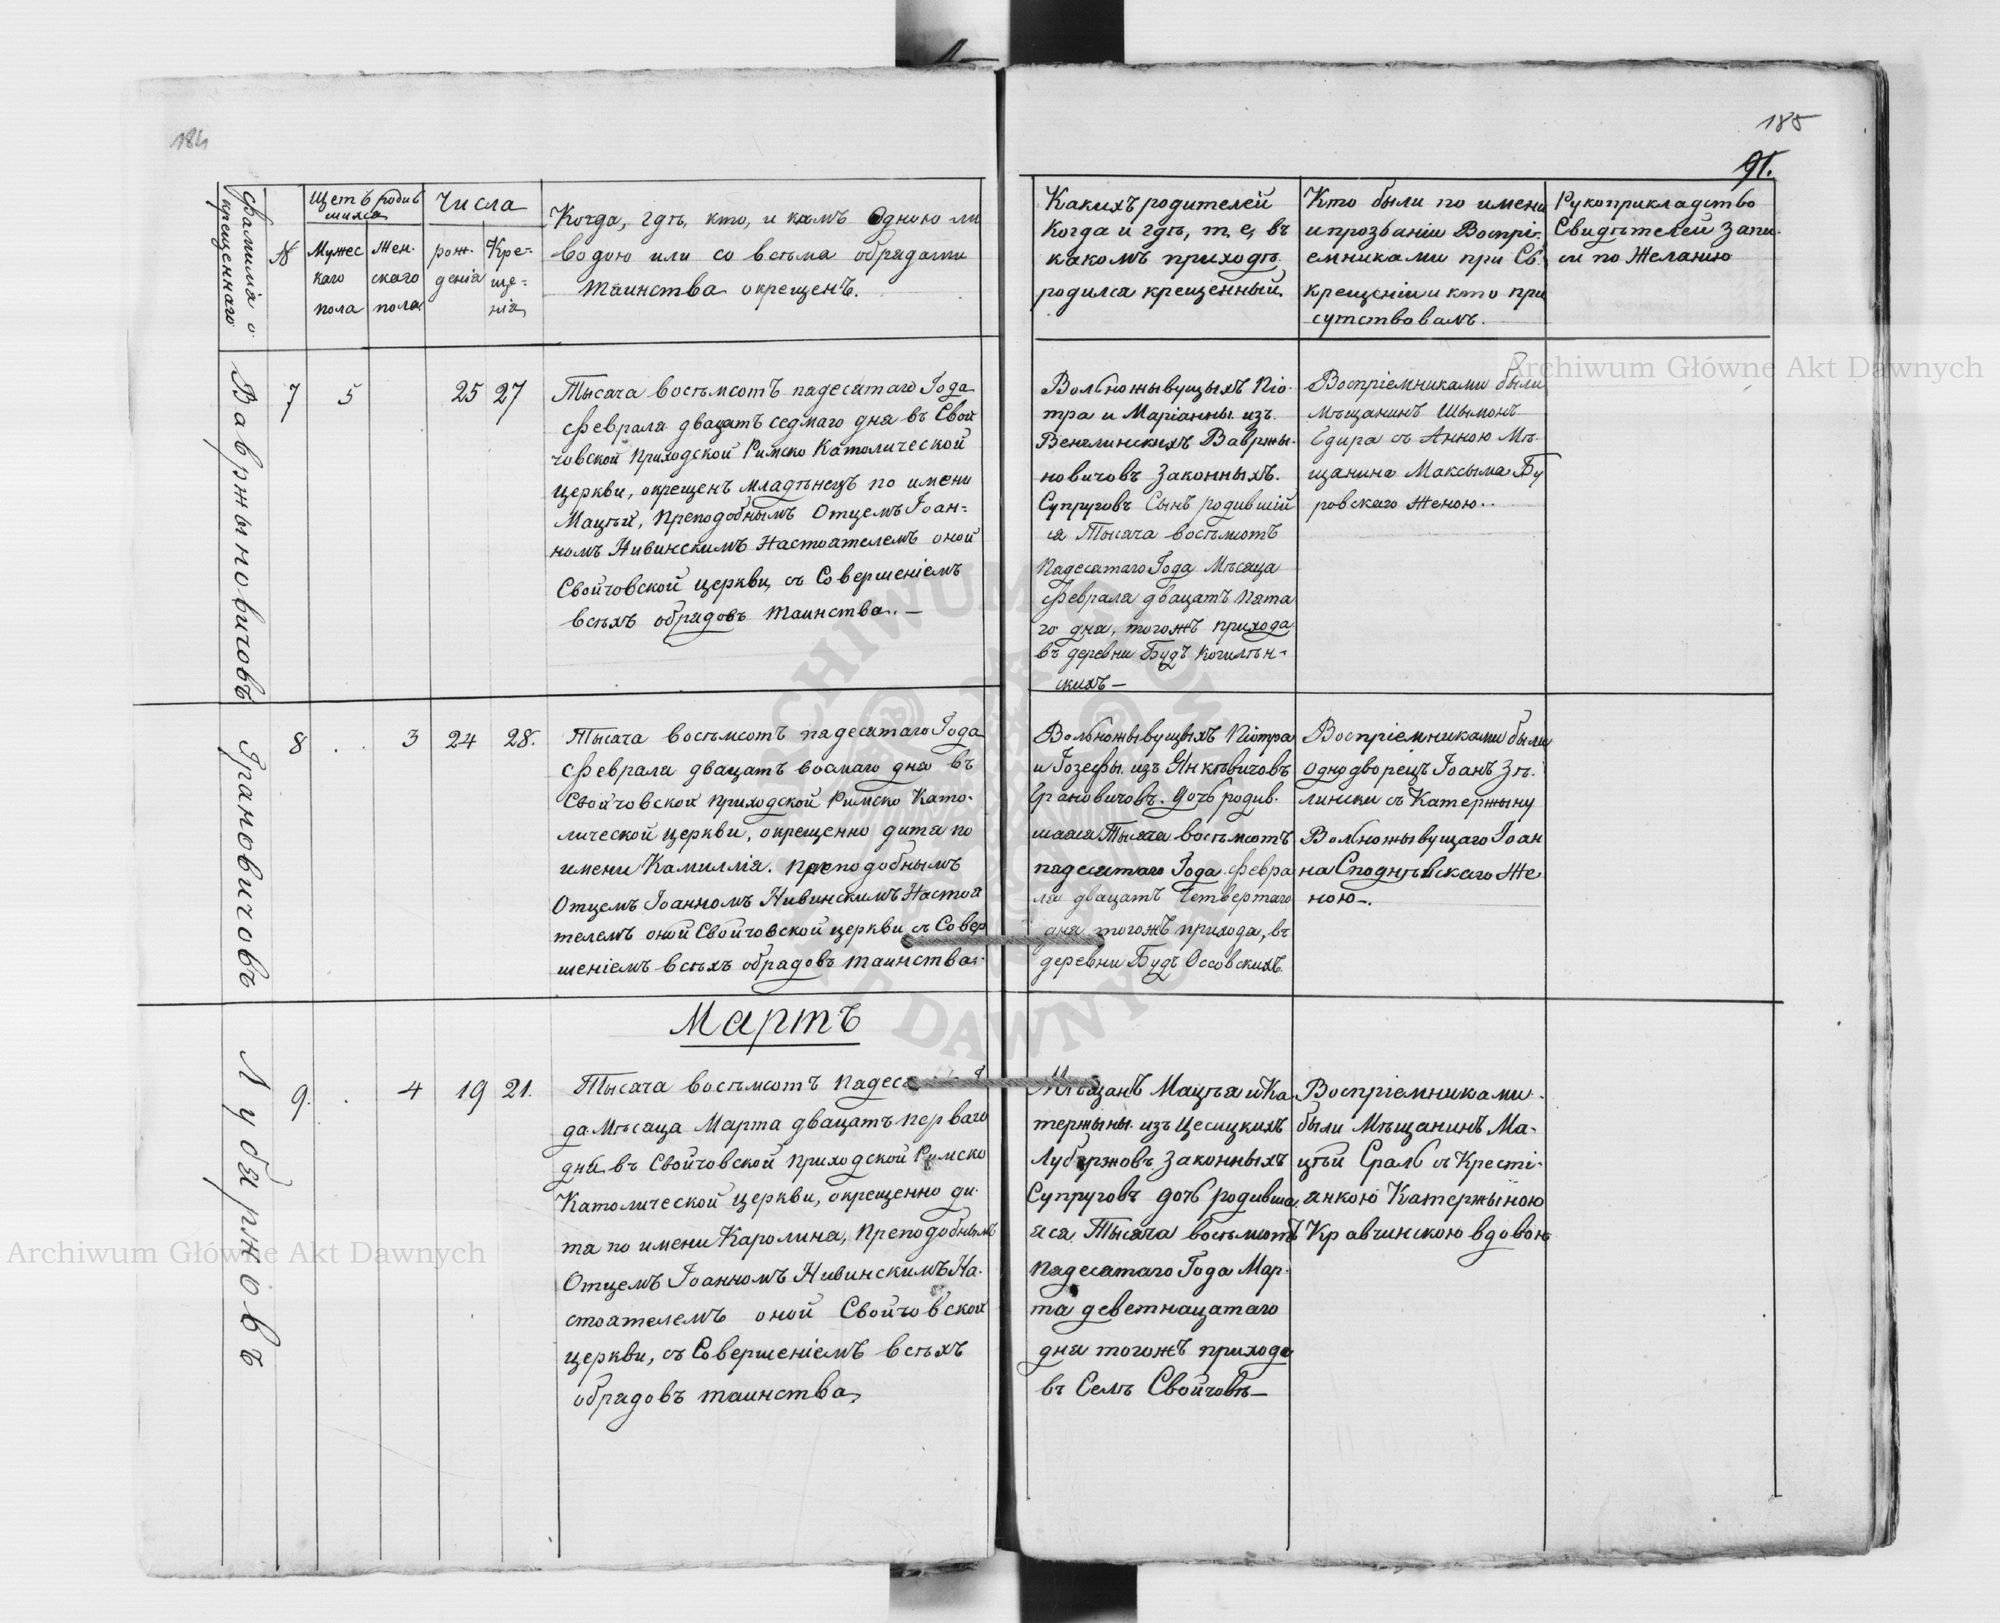 184
185
91.
Фамилiя о-
крещеннаго
№
Щетъ родив
шихся
Мужес
каго
пола
Жен-
скаго
пола
Числа
рож-
денiя
Кре-
ще-
нiя
Когда, гдѣ, кто, и камъ одною ли
водою или со всѣма обрядами
таинства окрещенъ.
Какихъ родителей
когда и гдѣ, т, е, въ
какомъ приходѣ
родился крещенный.
Кто были по имени
и прозванiи Воспрi-
емниками при Св.
крещенiи и кто при
сутствовалъ.
Рукоприкладство
Свидѣтелей запи-
си по желанiю
Вавржыновичовъ
7
5
25
27
Тысяча восѣмсотъ падесятаго Года
февраля двацатъ седмаго дня въ Свой
човской приходской Римско Католической
церкви, окрещенъ младѣнецъ по имени
Мацѣй, Преподобнымъ Отцемъ Iоан-
номъ Нивинскимъ Настоятелемъ оной
Свойчовской церкви, съ Совершенiемъ
всѣхъ обрядовъ таинства. —
Вольножывущыхъ Пiо-
тра и Марiанны изъ
Венглинскихъ Вавржы-
новичовъ Законныхъ
Супруговъ Сынъ родившiй
ся Тысяча восѣмсотъ
падесятаго Года Мѣсяца
февраля двацатъ пята
го дня, тогожъ прихода
въ деревни Будъ Когилѣн-
скихъ —
Воспрiемниками были
Мѣщанинъ Шымонъ
Сдира съ Анною Мѣ-
щанина Максыма Бу
ровскаго женою..
Грановичовъ
8
3
24
28.
Тысяча восѣмсотъ падесятаго Года
февраля двацатъ восмаго дня въ
Свойчовской приходской Римско Като-
лической церкви, окрещенно дитя по
имени Камиллiя. Преподобнымъ
Отцемъ Iоанномъ Нивинскимъ Настоя
телемъ оной Свойчовской церкви съ Совер
шенiемъ всѣхъ обрядовъ таинства.
Вольножывущыхъ Пiотра
и Iозефы изъ Янкѣвичовъ
Грановичовъ. дочь родив-
шаяся Тысяча восѣмсотъ
падесятаго Года февра
ля двацатъ Четвертаго
дня тогожъ прихода, въ
деревни Будъ Оссовскихъ
Воспрiемниками были
однодворецъ Iоанъ Зѣ-
лински съ Катержыну
Вольножывущаго Iоан
на Споднѣвскаго Же
ною —.
Мартъ
Лубяржовъ
9.
4
19
21.
Тысяча восѣмсотъ падеся
да Мѣсяца Марта двацатъ перваго
дня въ Свойчовской приходской Римско
Католической церкви, окрещенно ди-
тя по имени Каролина, Преподобнымъ
Отцемъ Iоанномъ Нивинскимъ На-
стоятелемъ оной Свойчовской
церкви, съ Совершенiемъ всѣхъ
обрядовъ таинства,
Мѣщанъ Мацѣя и Ка
тержыны изъ Цесицкихъ
Лубяржовъ Законныхъ
Супруговъ дочь родивша
яся Тысяча восѣмсотъ
падесятаго Года Мар-
та деветнацатаго
дня тогожъ прихода
въ Селѣ Свойчовѣ —
Воспрiемниками
были Мѣщанинъ Ма-
цѣй Сраль съ Крестi-
анкою Катержыною
Кравчинскою вдовою
Archiwum Główne Akt Dawnych
Archiwum Główne Akt Dawnych
ARCHIWUM GŁÓWNE
AKT DAWNYCH